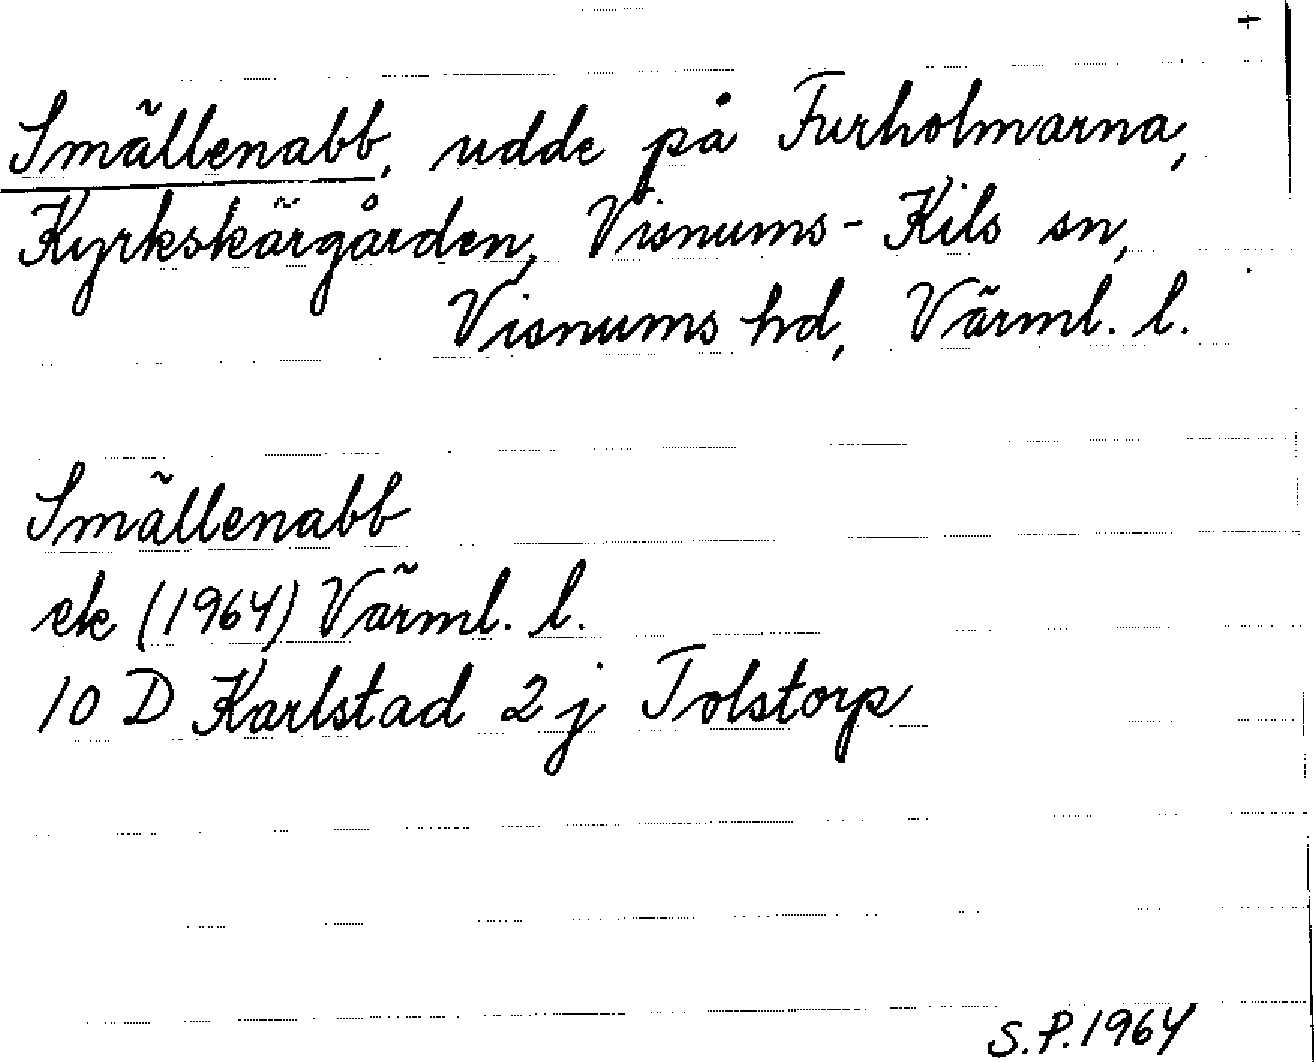 +
Smällenabb, udde på Furholmarna,
Kyrkskärgården, Visnums-Kils sn,
Visnums hd, Värml. l.
Smällenabb
ek (1964) Värml. l.
10 D Karlstad 2j Tolstorp
S.P. 1964